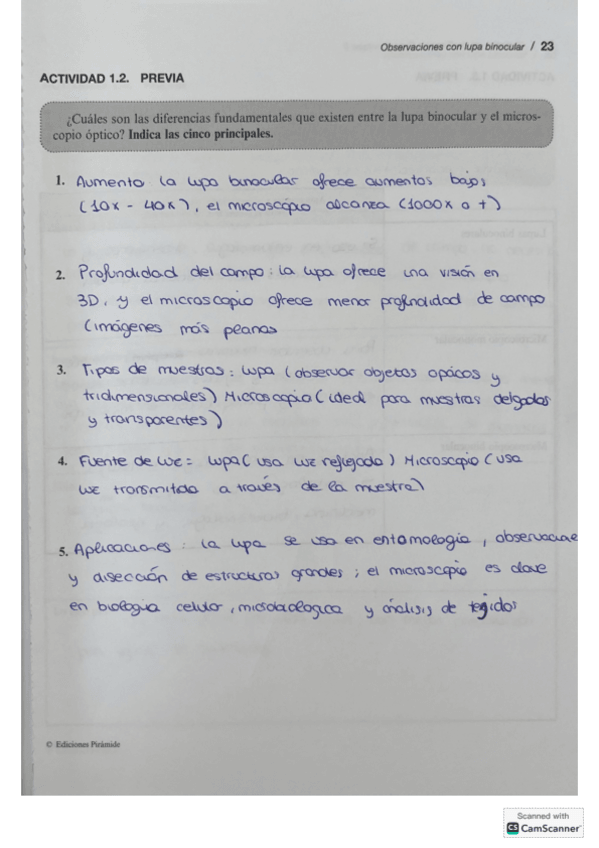 Observaciones con lupa binocular / 23
ACTIVIDAD 1.2. PREVIA
¿Cuáles son las diferencias fundamentales que existen entre la lupa binocular y el micros-
copio óptico? Indica las cinco principales.
1. Aumento la lupa binocular ofrece aumentos bajos
(10x - 40x), el microscopio alcanza (1000x o +)
2. Profundidad del campo: la lupa ofrece una visión en
3D, y el microscopio ofrece menor profundidad de campo
(imágenes más planas
3. Tipos de muestras: lupa (observar objetos opacos y
tridimensionales) Microscopio (ideal para muestras delgadas
y transparentes)
4. Fuente de luz = lupa (usa luz reflejada) Microscopio (usa
luz transmitida a través de la muestra)
5. Aplicaciones: la lupa se usa en entomología, observacione
y disección de estructuras grandes; el microscopio es clave
en biología celular, microbiologica y análisis de tejidos
© Ediciones Pirámide
Scanned with
CS CamScanner